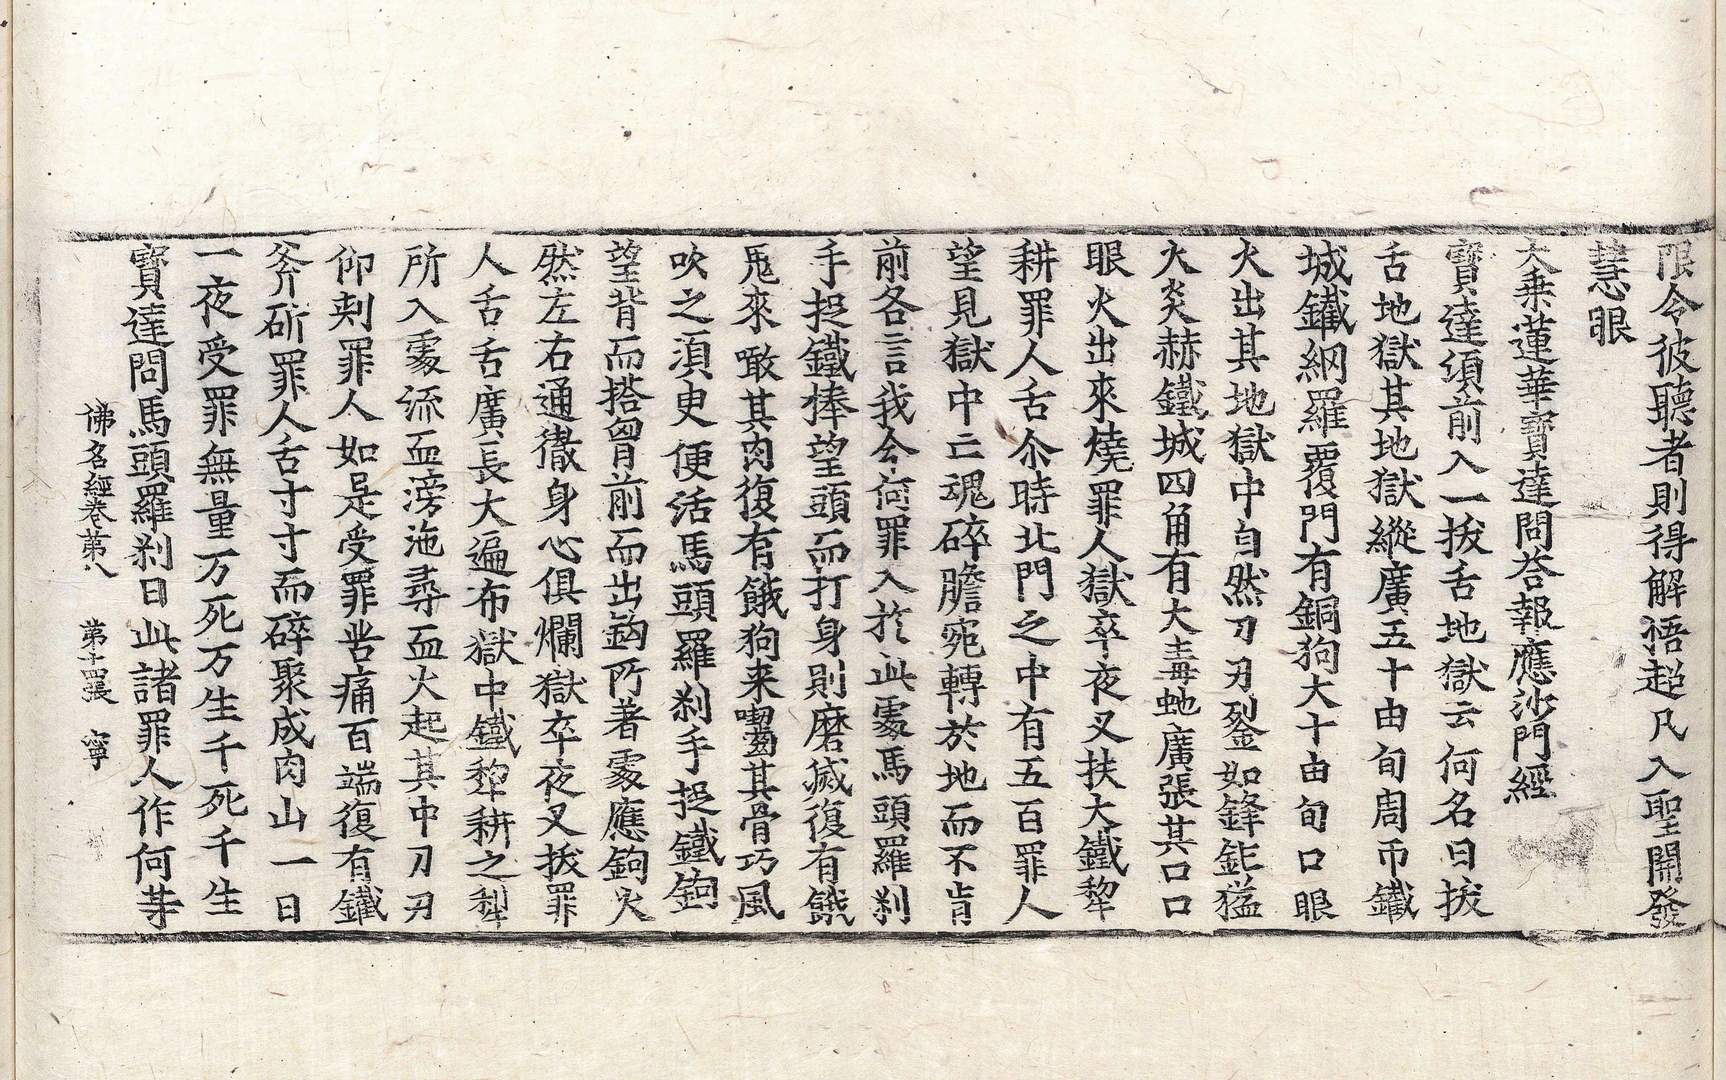 限令彼聽者則得解悟超凡入聖開發
慧眼
大乗蓮華寶達問荅報應沙門經
寶達湏前入一拔舌地獄云何名曰拔
舌地獄其地獄縱廣五十由旬周帀鐵
城鐵網羅覆門有銅狗大十由旬口眼
火出其地獄中自然刀刃𨦣如鋒鉅猛
火炎赫鐵城四角有大毒虵廣張其口口
眼火出來燒罪人獄卒夜叉扶大鐵犂
耕罪人舌尒時北門之中有五百罪人
望見獄中亡魂碎膽宛轉於地而不肯
前各言我今何罪入於此處馬頭羅刹
手捉鐵棒望頭而打身則磨滅復有餓
鬼來噉其肉復有餓狗来齧其骨巧風
吹之湏臾便活馬頭羅刹手捉鐵鉤
望背而搭胷前而出鉤所著處應鉤火
然左右通徹身心俱爛獄卒夜叉拔罪
人舌舌廣長大遍布獄中鐵犂耕之犂
所入處流血滂沲尋血火起其中刀刃
仰刾罪人如是受罪苦痛百端復有鐵
斧斫罪人舌寸寸而碎聚成肉山一日
一夜受罪無量万死万生千死千生
寶達問馬頭羅刹曰此諸罪人作何䓁
佛名經卷第八　第十四張　寧